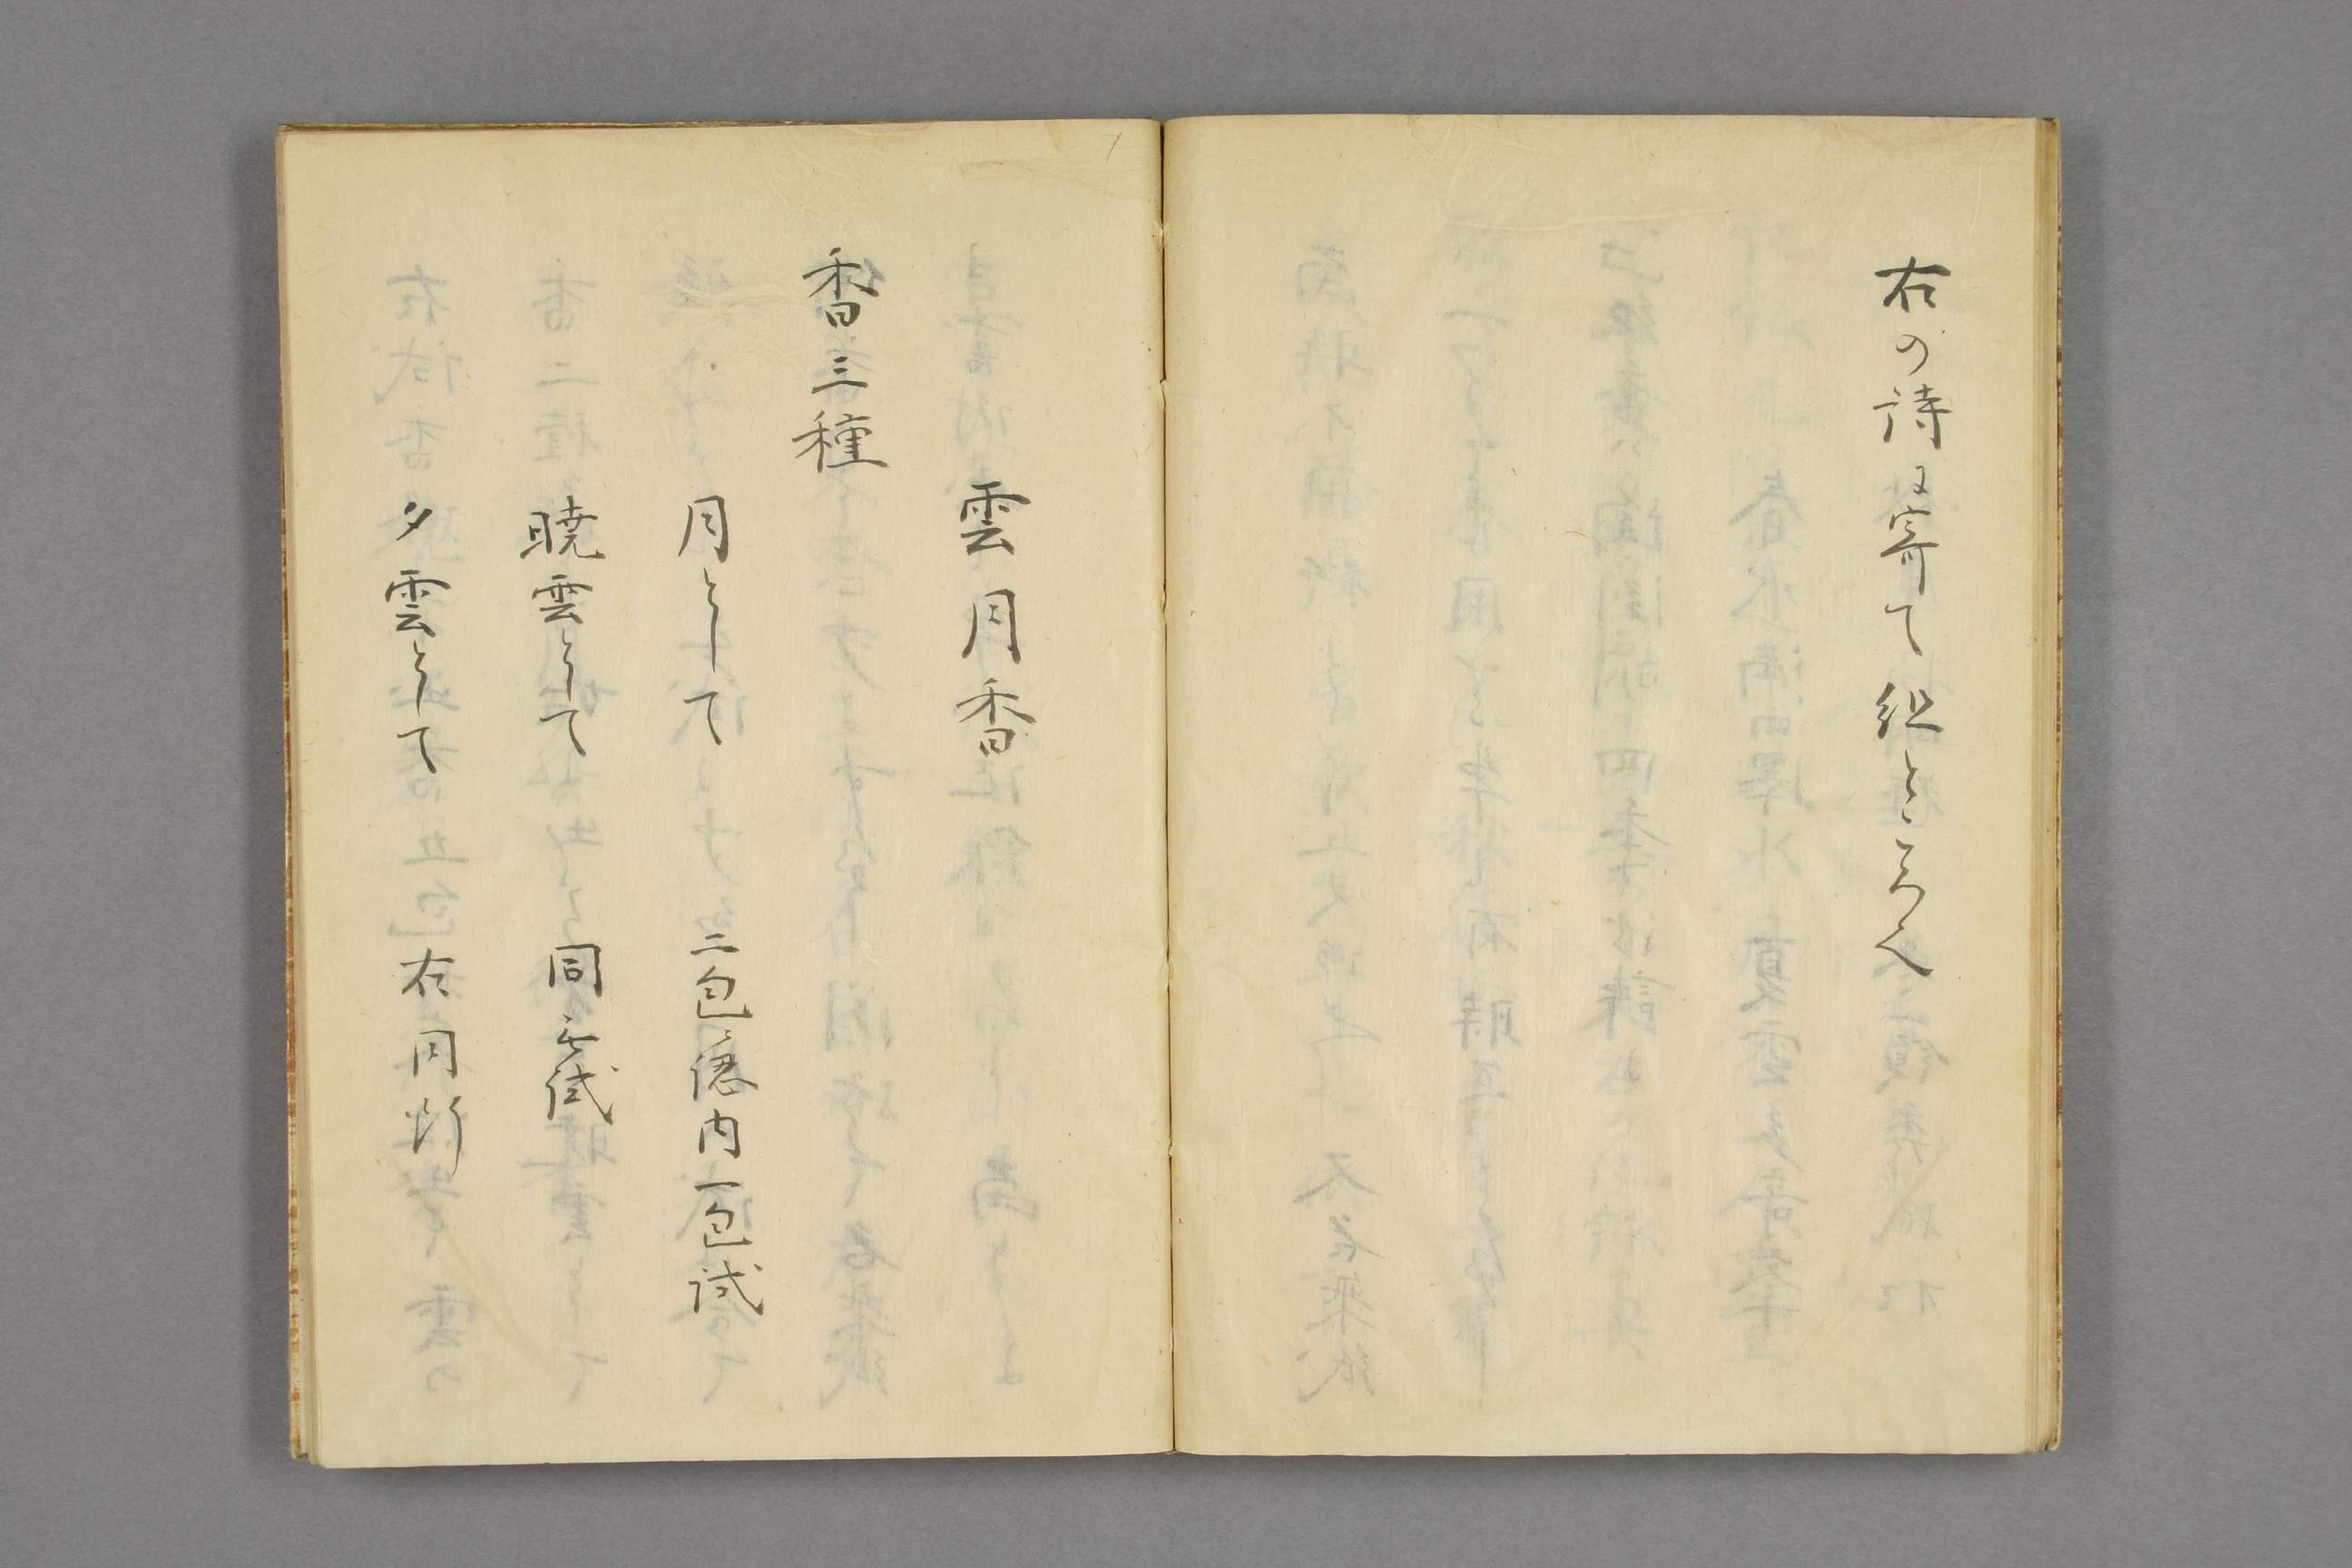 右の詩に寄て組ところ也
雲月香
香三種
月として 二包認内一包試
暁雲として 同無試
夕雲として 右同断